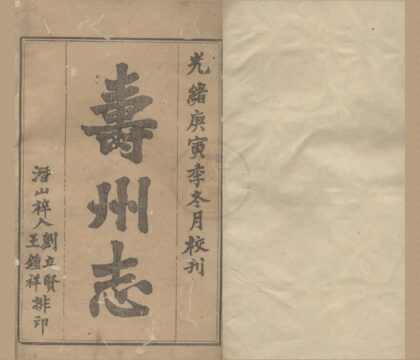 光緒庚寅季冬月校刊
壽州志
潛山梓人劉立賢
王鍾祥排印